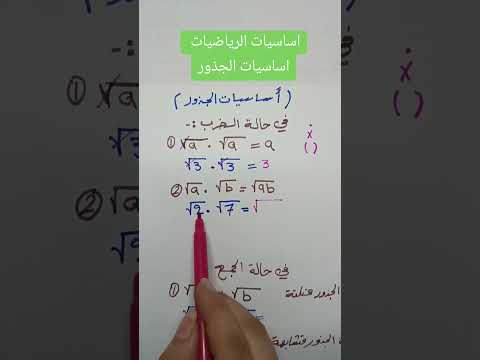 اساسيات الرياضيات
اساسيات الجذور
(أساسيات الجذور)
في حالة الضرب :-
① √a . √a = a
. × ( )
√3 . √3 = 3
② √a . √b = √ab
√2 . √7 = √
في حالة الجمع
① √b الجذور مختلفة
الجذور متشابهة